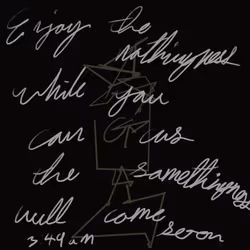 Enjoy the
nothingness
while you
can cus
the somethingness
will come
seron
3 49 am